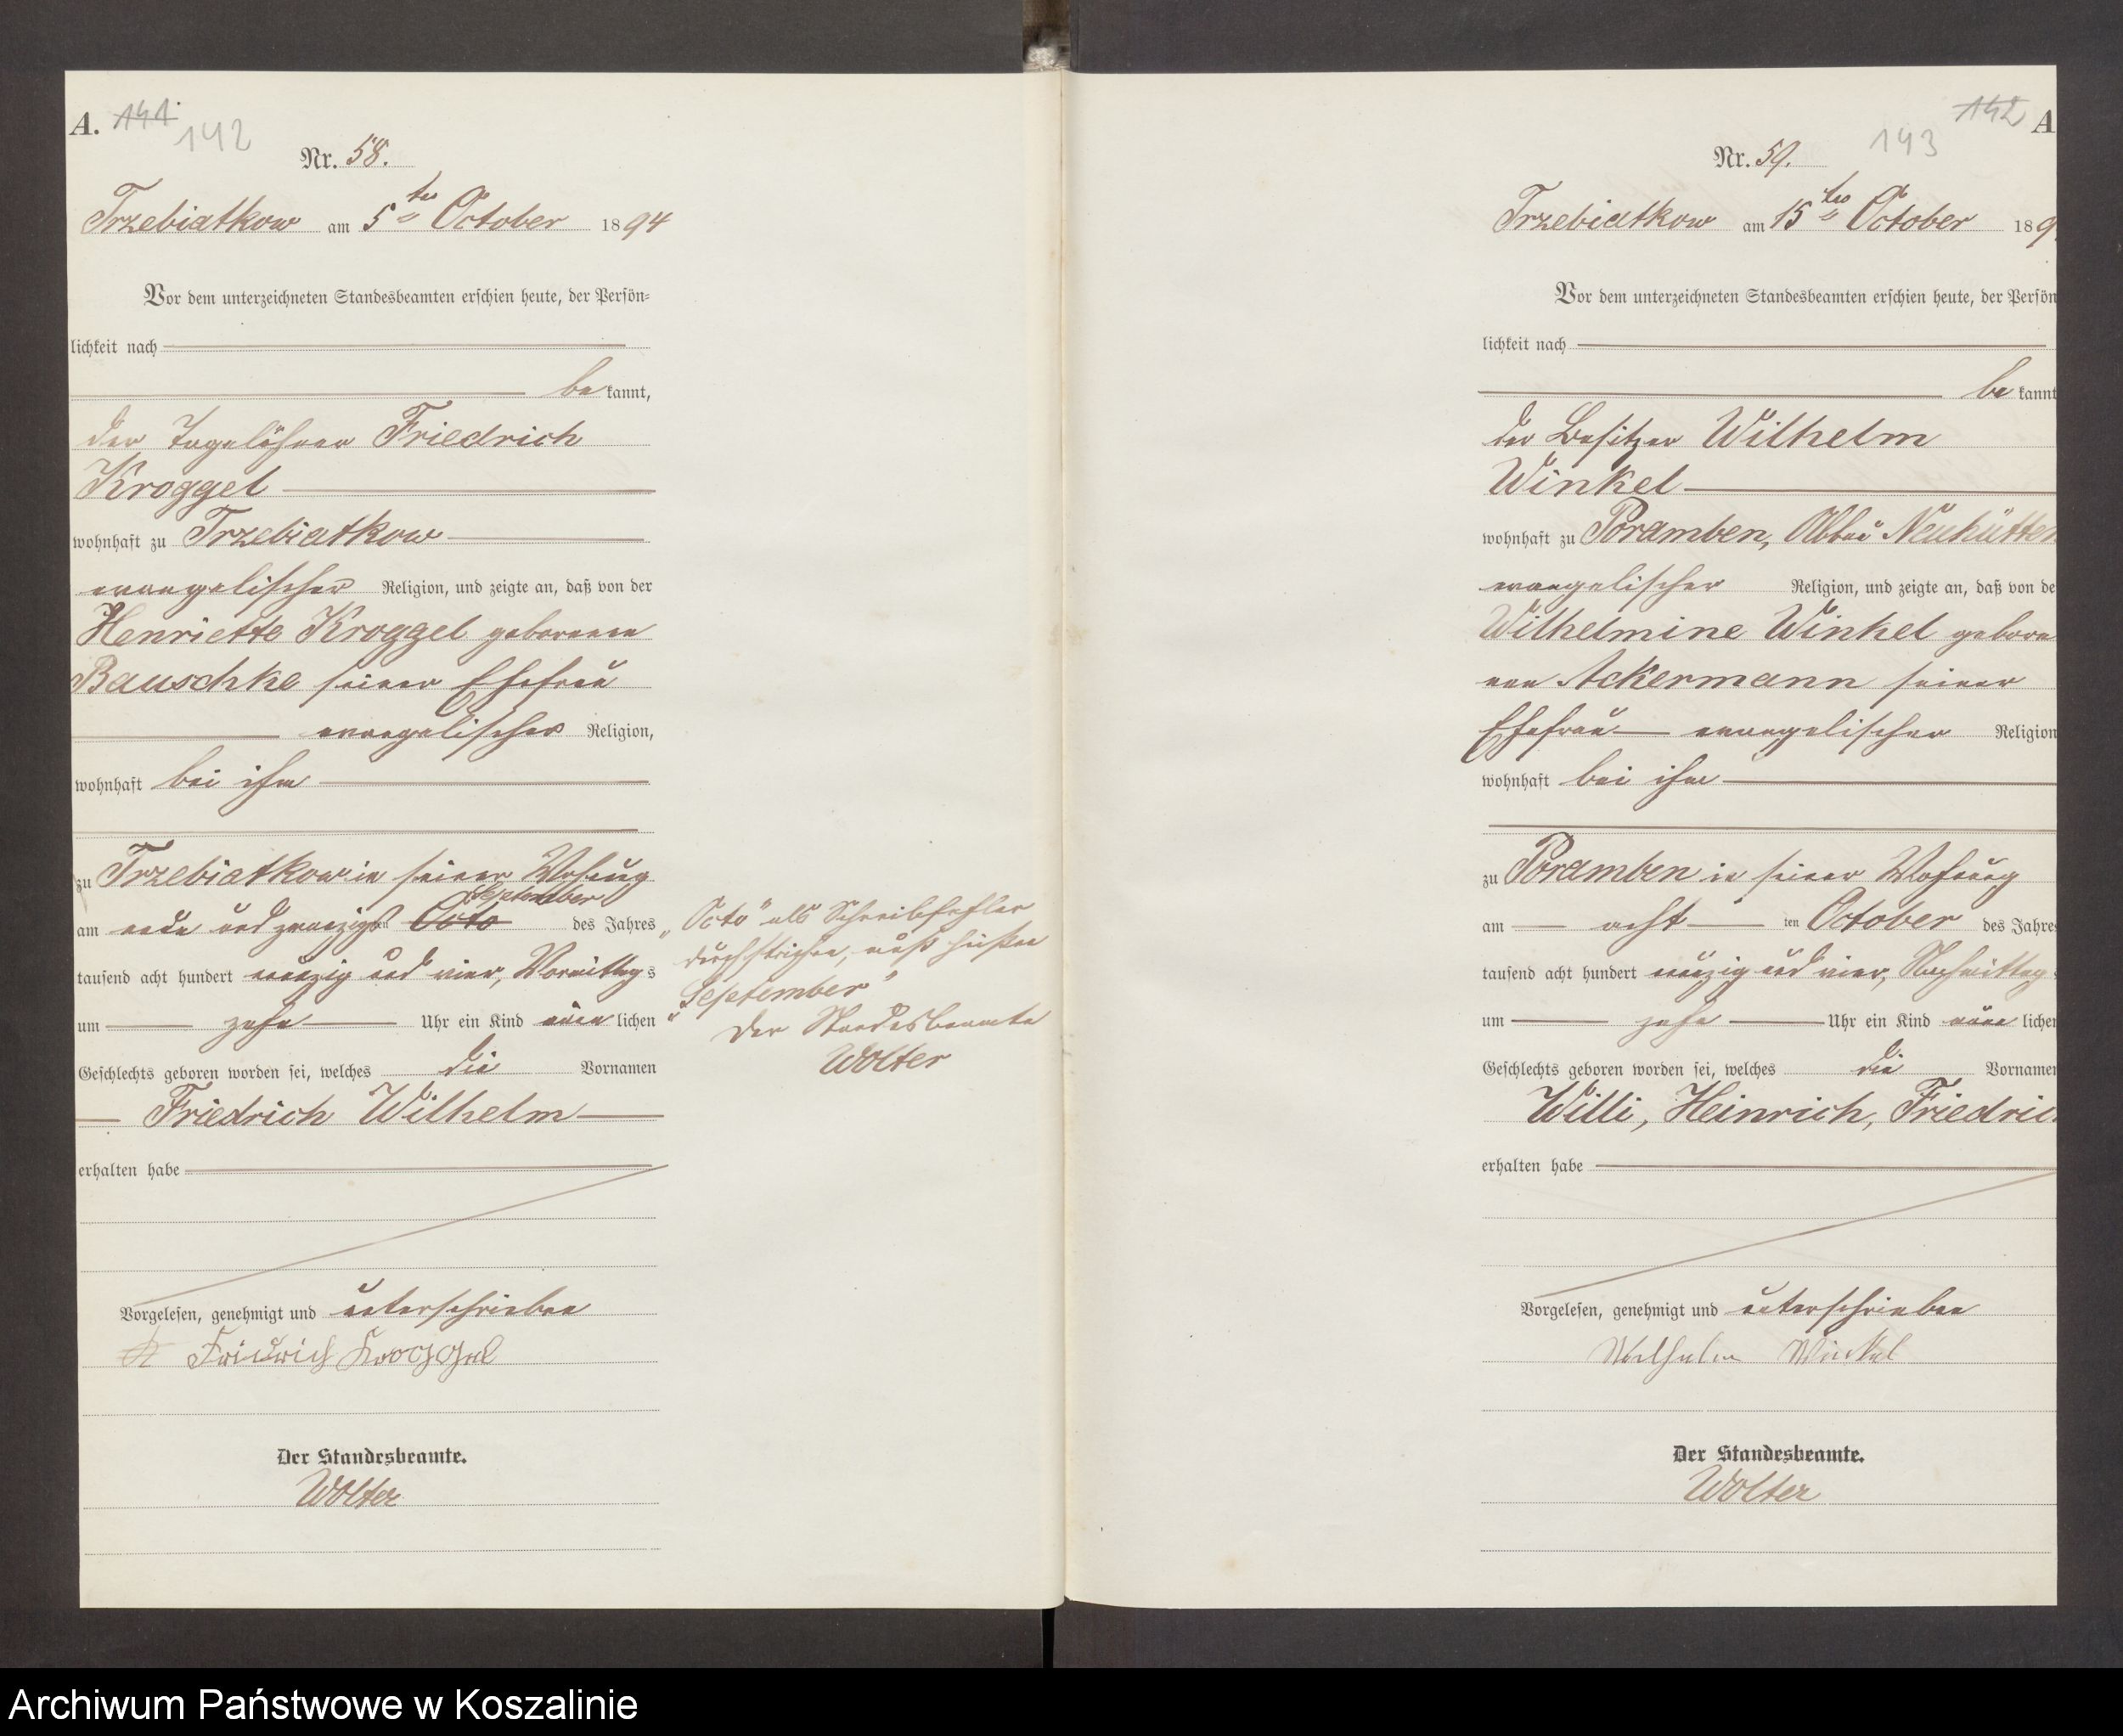 A. 141. 142
Nr. 58.
Trzebiatkow am 5ten October 1894
Vor dem unterzeichneten Standesbeamten erschien heute, der Persön-
lichkeit nach
bekannt,
der Tagelöhner Friedrich
Kroggel
wohnhaft zu Trzebiatkow
evangelischer Religion, und zeigte an, daß von der
Henriette Kroggel geborenen
Bauschke seiner Ehefrau
evangelischer Religion,
wohnhaft bei ihm
zu Trzebiatkow in seiner Wohnung
September
am und zwanzigsten Octo des Jahres
tausend acht hundert neunzig und vier, Vormittags
um zehn Uhr ein Kind männlichen
Geschlechts geboren worden sei, welches die Vornamen
Friedrich Wilhelm
erhalten habe
Vorgelesen, genehmigt und unterschrieben
Fridrich Kroggel
Der Standesbeamte.
Wolter
„Octo“ als Schreibfehler
durchstrichen, muß heißen
„September“
Der Standesbeamte
Wolter
142 A
143
Nr. 59.
Trzebiatkow am 15ten October 189
Vor dem unterzeichneten Standesbeamten erschien heute, der Persön
lichkeit nach
bekannt
der Besitzer Wilhelm
Winkel
wohnhaft zu Poramben, Abbau Neuhütten
evangelischer Religion, und zeigte an, daß von de
Wilhelmine Winkel gebore
nen Ackermann seiner
Ehefrau evangelischer Religion
wohnhaft bei ihm
zu Poramben in seiner Wohnung
am acht ten October des Jahres
tausend acht hundert neunzig und vier, Nachmittag
um zehn Uhr ein Kind männlichen
Geschlechts geboren worden sei, welches die Vornamen
Willi, Heinrich, Friedric
erhalten habe
Vorgelesen, genehmigt und unterschrieben
Wilhelm Winkel
Der Standesbeamte.
Wolter
Archiwum Państwowe w Koszalinie